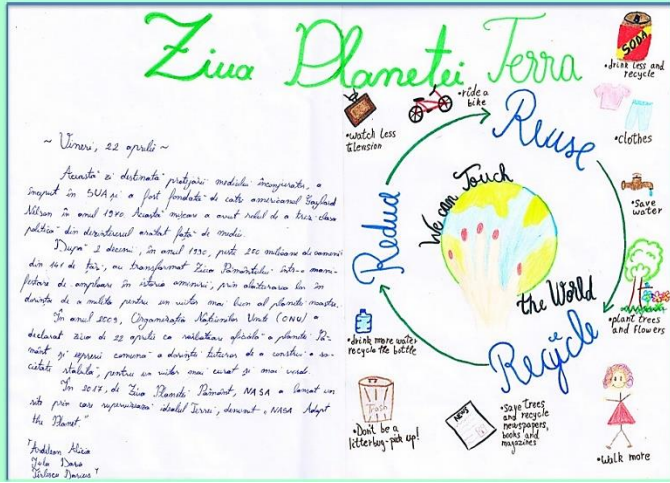 Ziua Planetei Terra
~ Vineri, 22 aprilie ~
Această zi destinată protejării mediului înconjurător, a
început în SUA și a fost fondată de către americanul Gaylord
Nelson în anul 1970. Această mișcare a avut rolul de a trezi clasa
politică din dezinteresul arătat față de mediu.
După 2 decenii, în anul 1990, peste 200 milioane de oameni
din 141 de țări, au transformat Ziua Pământului într-o mani-
festare de amploare în istoria omenirii, prin alăturarea lor în
dorința de a milita pentru un viitor mai bun al planetei noastre.
În anul 2009, Organizația Națiunilor Unite (ONU) a
declarat ziua de 22 aprilie ca sărbătoare oficială a planetei Pă-
mânt și expresii comună a dorinței tuturor de a construi o so-
cietate stabilă, pentru un viitor mai curat și mai verde.
În 2017, de Ziua Planetei Pământ, NASA a lansat un
site prin care , denumit „NASA Adopt
the Planet."
Alicia
Daria
Darius
•watch less
•ride a
bike
Reuse
•drink less and
recycle
SODA
•clothes
•save
water
•plant trees
and flowers
•walk more
Recycle
•save trees
and recycle
newspapers,
books and
magazines
NEWS
Trash
•Don't be a
litterbug-pick up!
•drink more water
recycle the bottle
We can Touch
the World